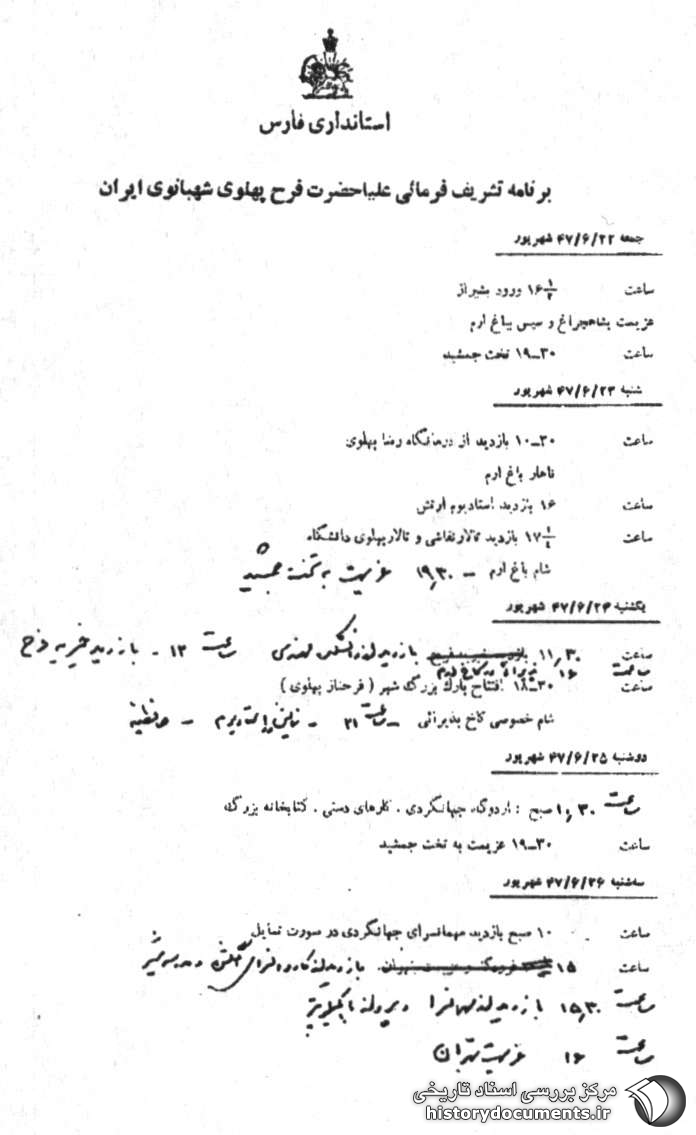 استانداری فارس
برنامه تشریف فرمائی علیاحضرت فرح پهلوی شهبانوی ایران
جمعه ۴۷/۶/۲۲ شهریور
ساعت ۱۶ ۱/۲ ورود بشیراز
عزیمت بشاهچراغ و سپس بباغ ارم
ساعت ۳۰ــ۱۹ تخت جمشید
شنبه ۴۷/۶/۲۳ شهریور
ساعت ۳۰ــ۱۰ بازدید از درمانگاه رضا پهلوی
ناهار باغ ارم
ساعت ۱۶ بازدید استادیوم ارتش
ساعت ۱۷ ۱/۴ بازدید تالار نقاشی و تالار پهلوی دانشگاه
شام باغ ارم ــ ۱۹٫۳۰ عزیمت به تخت جمشید
یکشنبه ۴۷/۶/۲۴ شهریور
ساعت ۱۱٫۳۰ بازدید از ساعت ۱۲ - بازدید خیریه فرح
ساعت ۱۶ پذیرائی در کاخ ارم
ساعت ۳۰ــ۱۸ افتتاح پارک بزرگ شهر ( فرحناز پهلوی )
شام خصوصی کاخ پذیرائی - ساعت ۲۱ - - حافظیه
دوشنبه ۴۷/۶/۲۵ شهریور
ساعت ۱۰٫۳۰ صبح : اردوگاه جهانگردی . کارهای دستی . کتابخانه بزرگ
ساعت ۳۰ــ۱۹ عزیمت به تخت جمشید
سه شنبه ۴۷/۶/۲۶ شهریور
ساعت ۱۰ صبح بازدید مهمانسرای جهانگردی در صورت تمایل
ساعت ۱۵ بازدید از و
ساعت ۱۵٫۳۰ بازدید از و
ساعت ۱۶ عزیمت تهران
مرکز بررسی اسناد تاریخی
historydocuments.ir